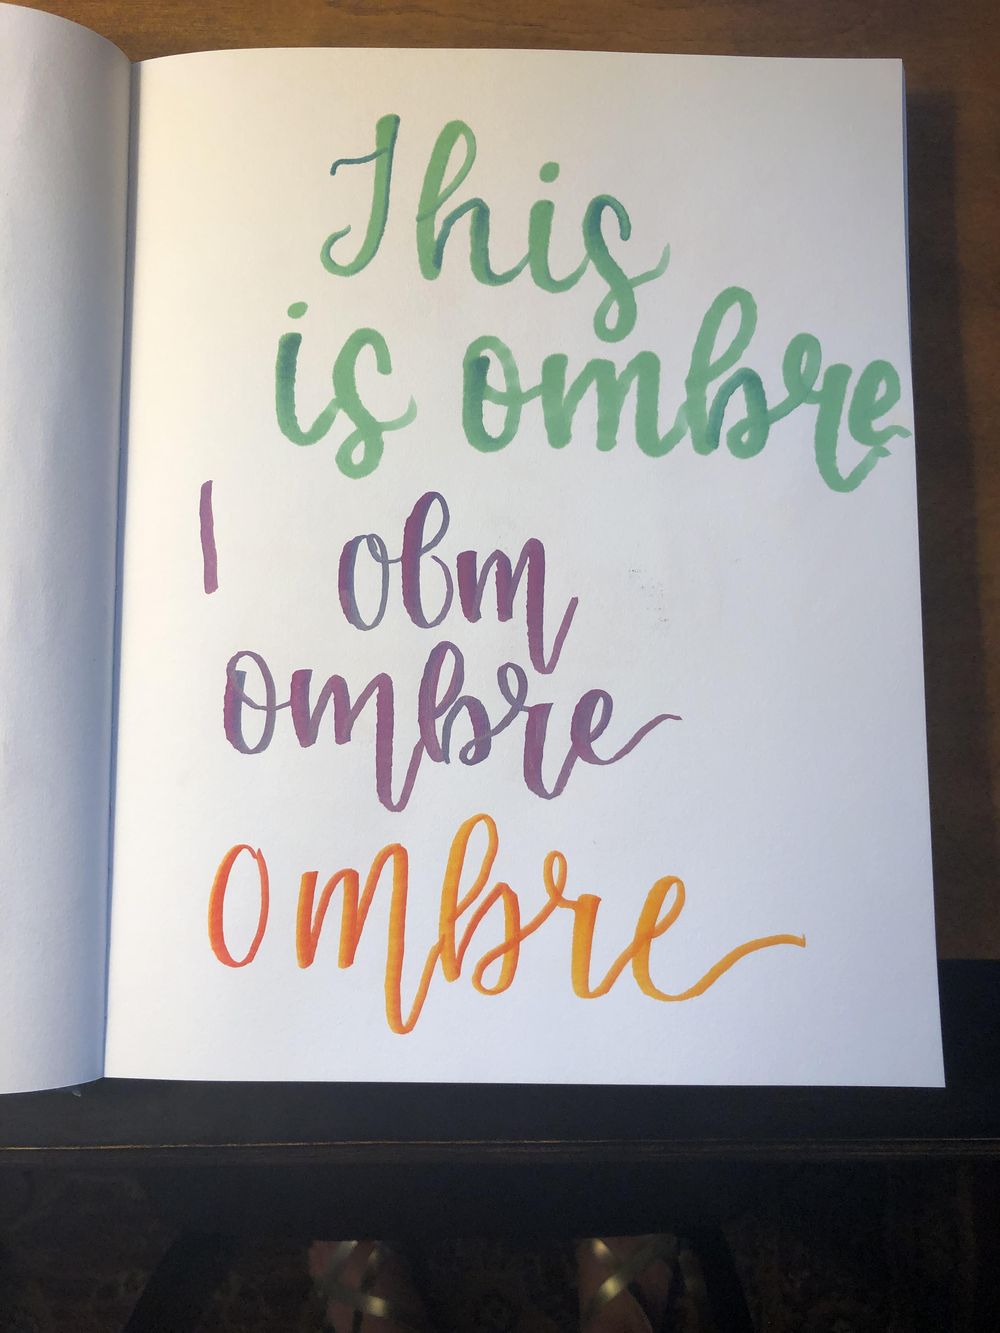 This
is ombre
I obm
ombre
ombre